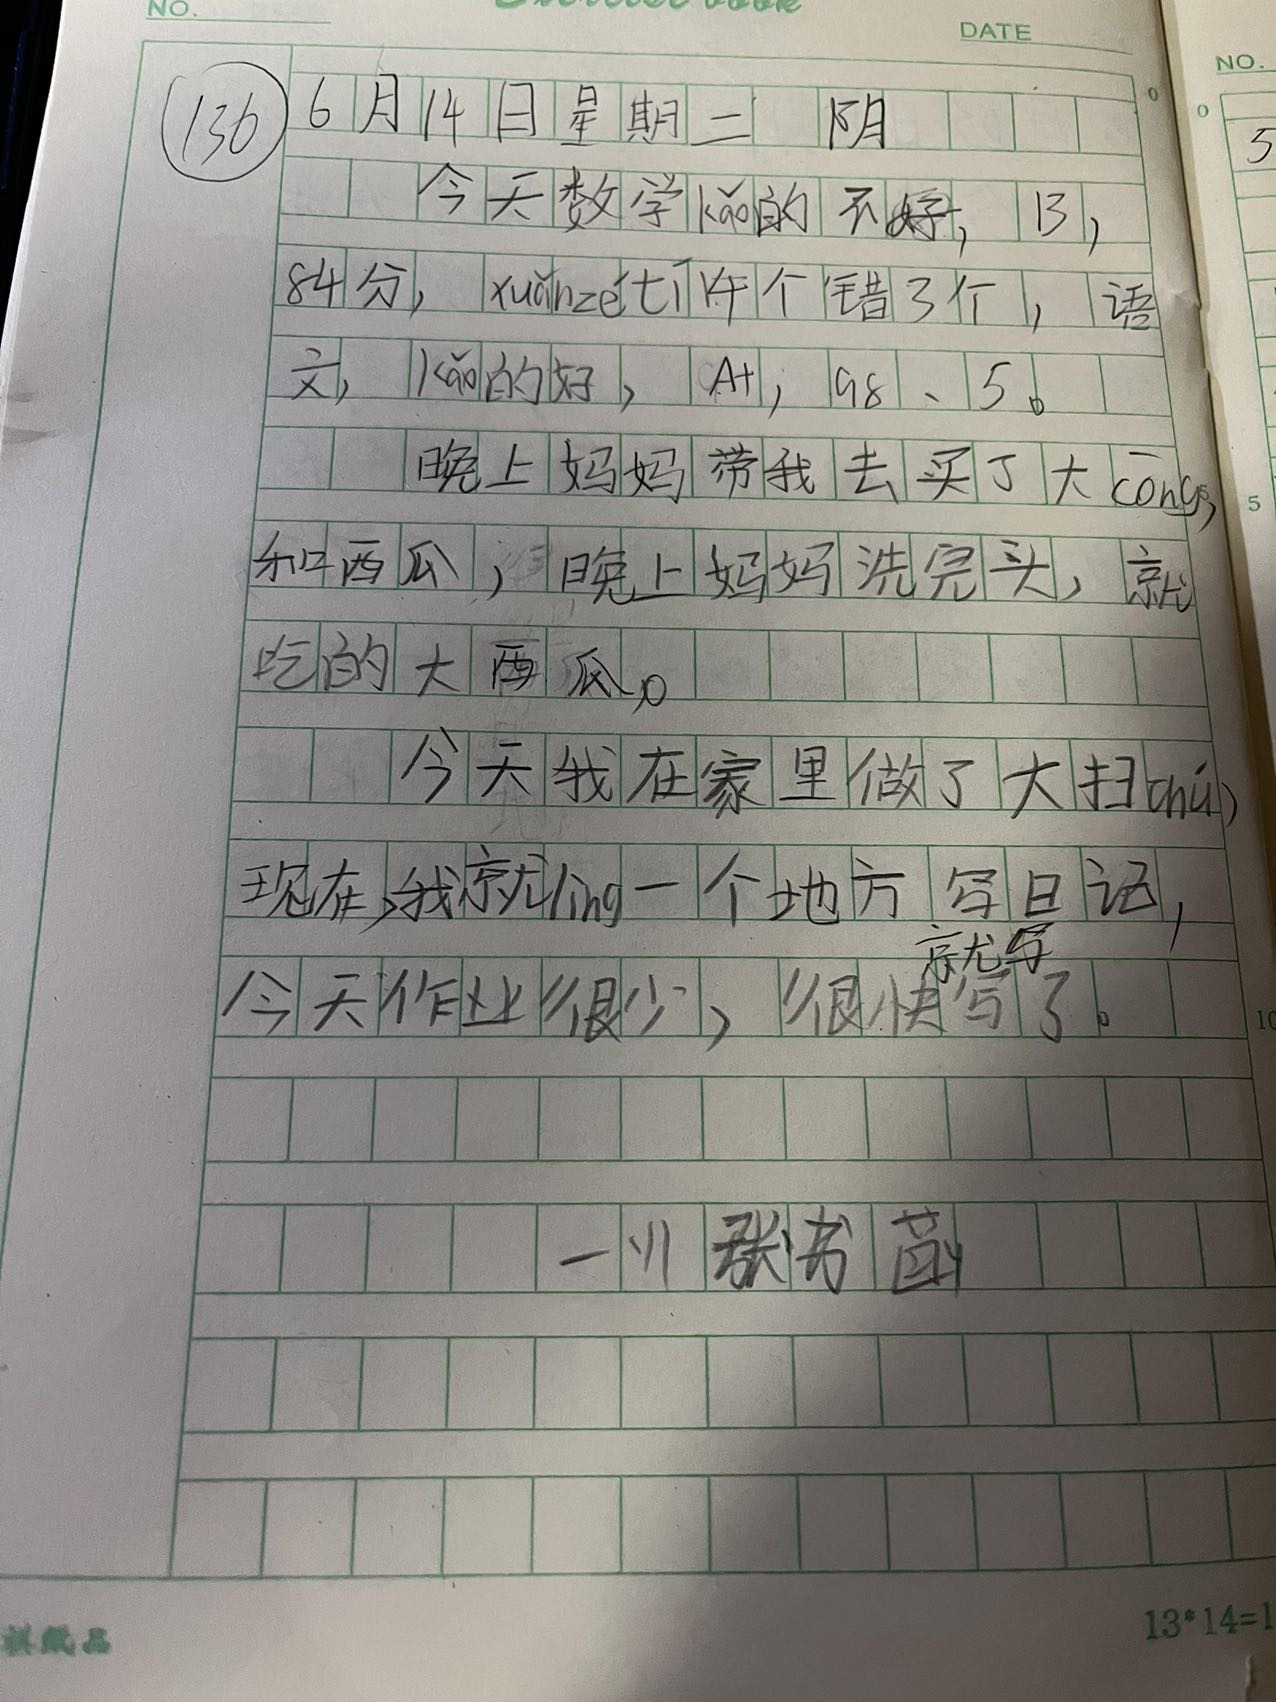 NO.
Exercise book
DATE
NO.
136
6月14日星期二 阴
今天数学kǎo的不好，B，
84分，xuǎnzétí 5个错了个，语
文，kǎo的好，A+，98、5。
晚上妈妈带我去买了大cōng，
和西瓜，晚上妈妈洗完头，就
吃的大西瓜。
今天我在家里做了大扫chú，
现在，我就lìng一个地方写日记，
就写
今天作业很少，很快写了。
张书菡
0
0
5
5
5
10
13*14=1
纸品